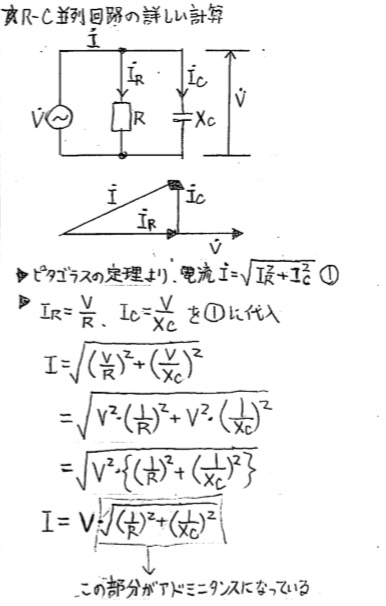 ☆R-C並列回路の詳しい計算
İ
İR
İC
V̇
R
XC
V̇
İ
İC
İR
V̇
▶ピタゴラスの定理より、電流İ=√(IR²+IC²) ①
▶IR=V/R、IC=V/XC を①に代入
I=√((V/R)²+(V/XC)²)
=√(V²・(1/R)²+V²・(1/XC)²)
=√(V²・{(1/R)²+(1/XC)²})
I=V・√((1/R)²+(1/XC)²)
この部分がアドミニタンスになっている